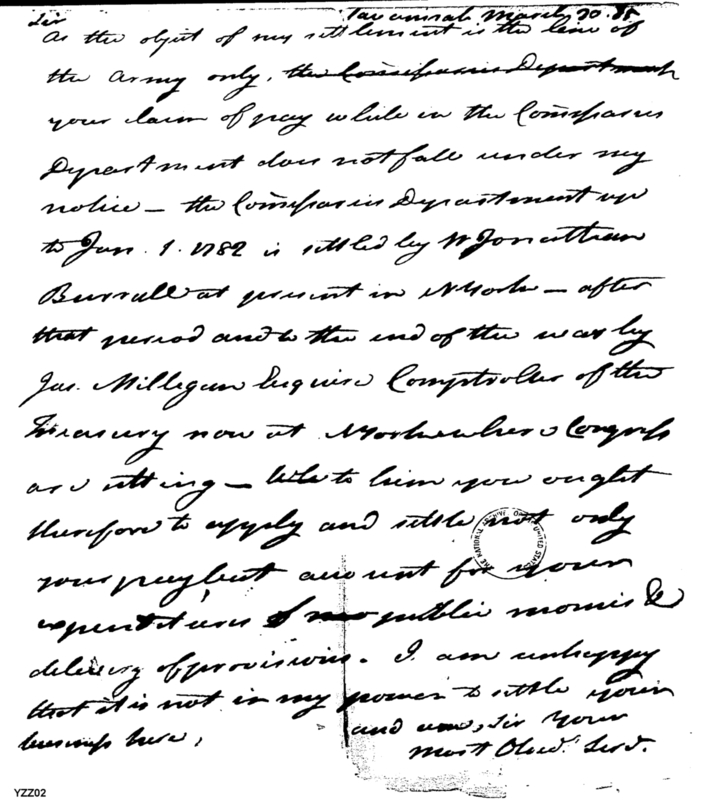 Savannah March 30. 85
Sir
As the object of my settlement is the line of
the Army only, the Comissaries Department
your claim of pay while in the Comissaries
Department does not fall under my
notice – the Comissaries Department up
to Jan. 1. 1782 is settled by Jonathan
Burrall at present in NYork – after
that period and to the end of the war by
Jas. Milligan Esquire Comptroller of the
Treasury now at NYork where Congress
are sitting – to him you ought
therefore to apply and settle not only
your pay but account for your
expenditures of public monies &
delivery of provisions. I am unhappy
that it is not in my power to settle your
business here,
and am, Sir Your
Most Obed. Serv.
THE NATIONAL ARCHIVES OF THE UNITED STATES
YZZ02